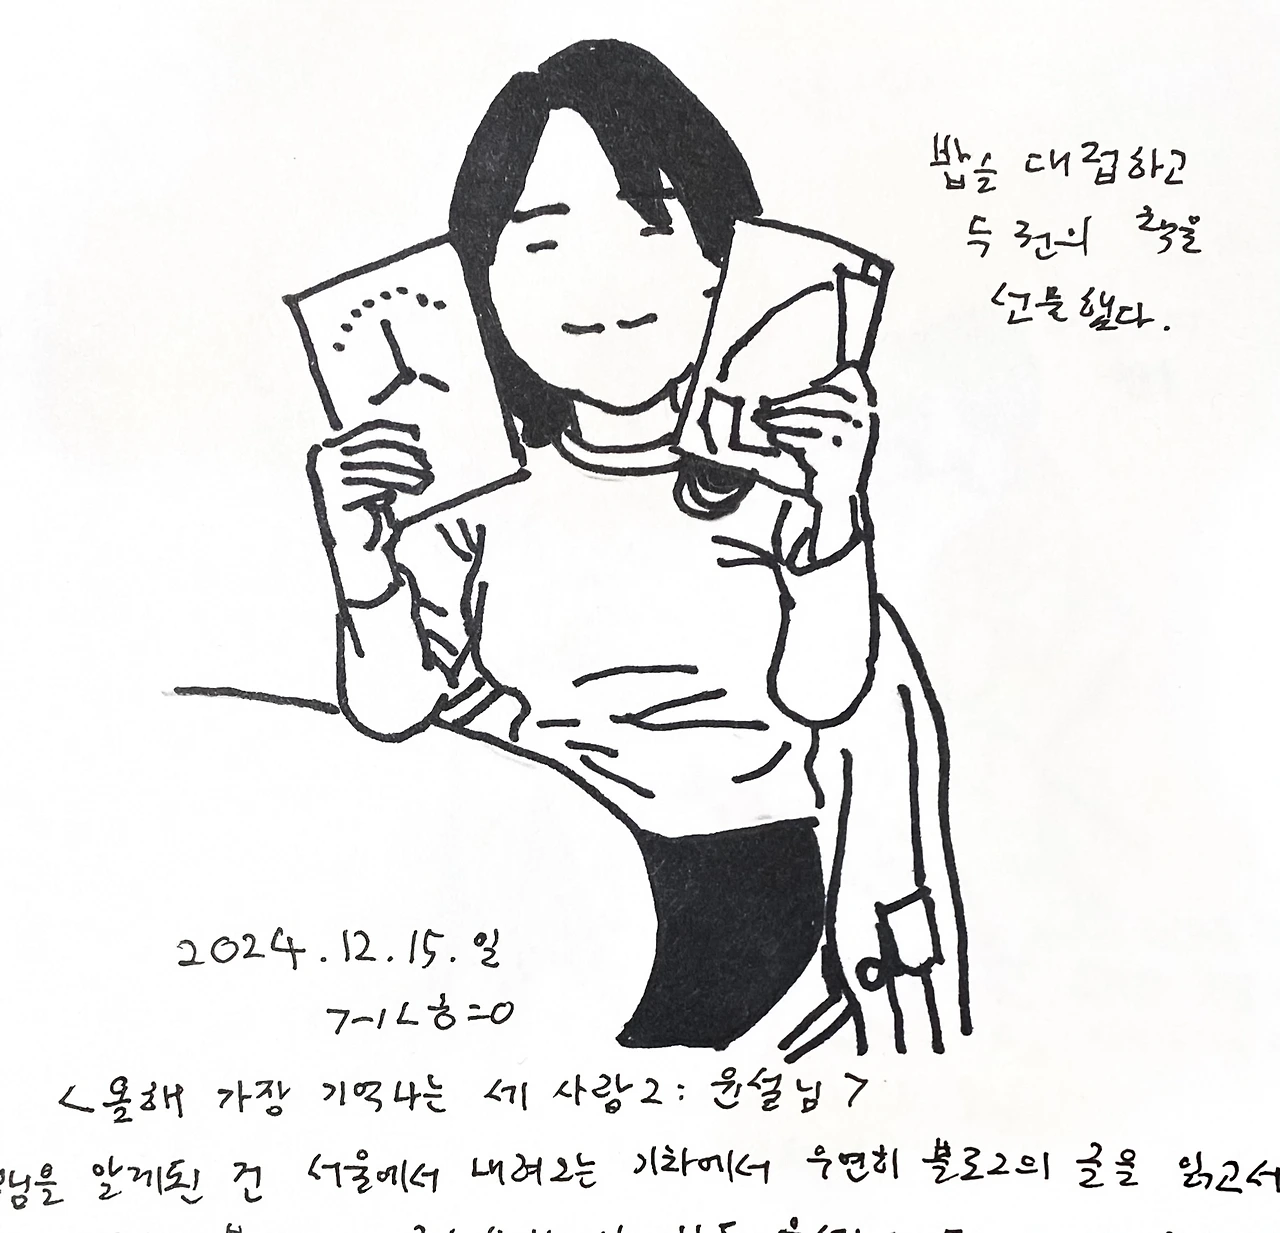 밥을 대접하고
두 권의 책을
선물했다.
2024.12.15.일
<올해 가장 기억나는 세 사람2: 윤설님>
님을 알게된 건 서울에서 내려오는 기차에서 우연히 블로그의 글을 읽고서